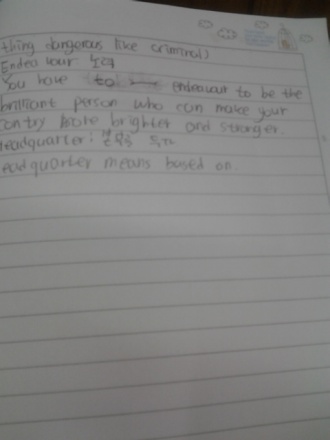 thing dangerous like criminal)
Endeavour 노력
You have to endeavour to be the
brilliant person who can make your
contry more brighter and stronger.
eadquarter: 본부
eadquarter means based on.